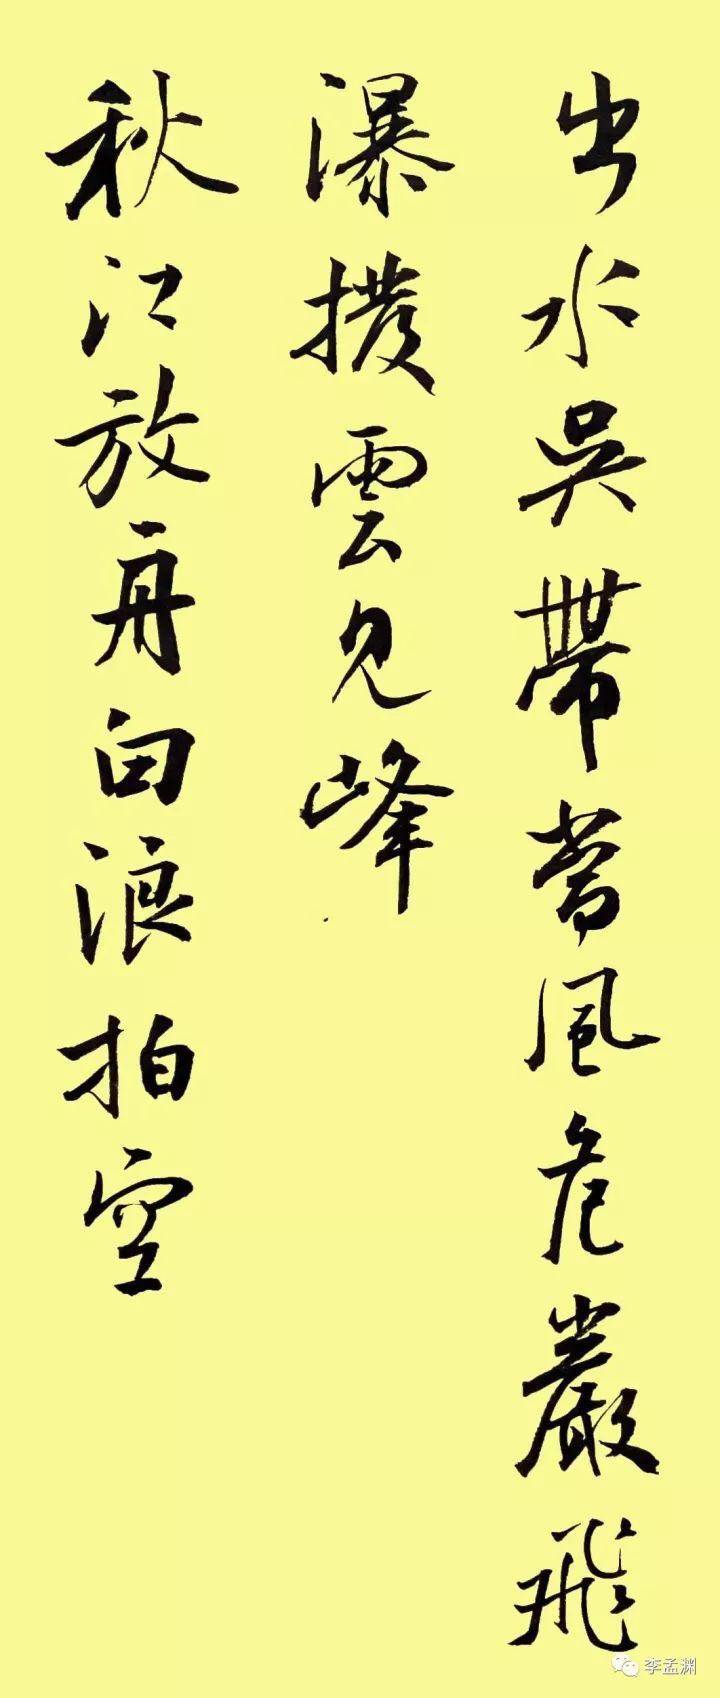 出水吳帶當風危巖飛
瀑撥雲見峰
秋江放舟白浪拍空
李孟渊